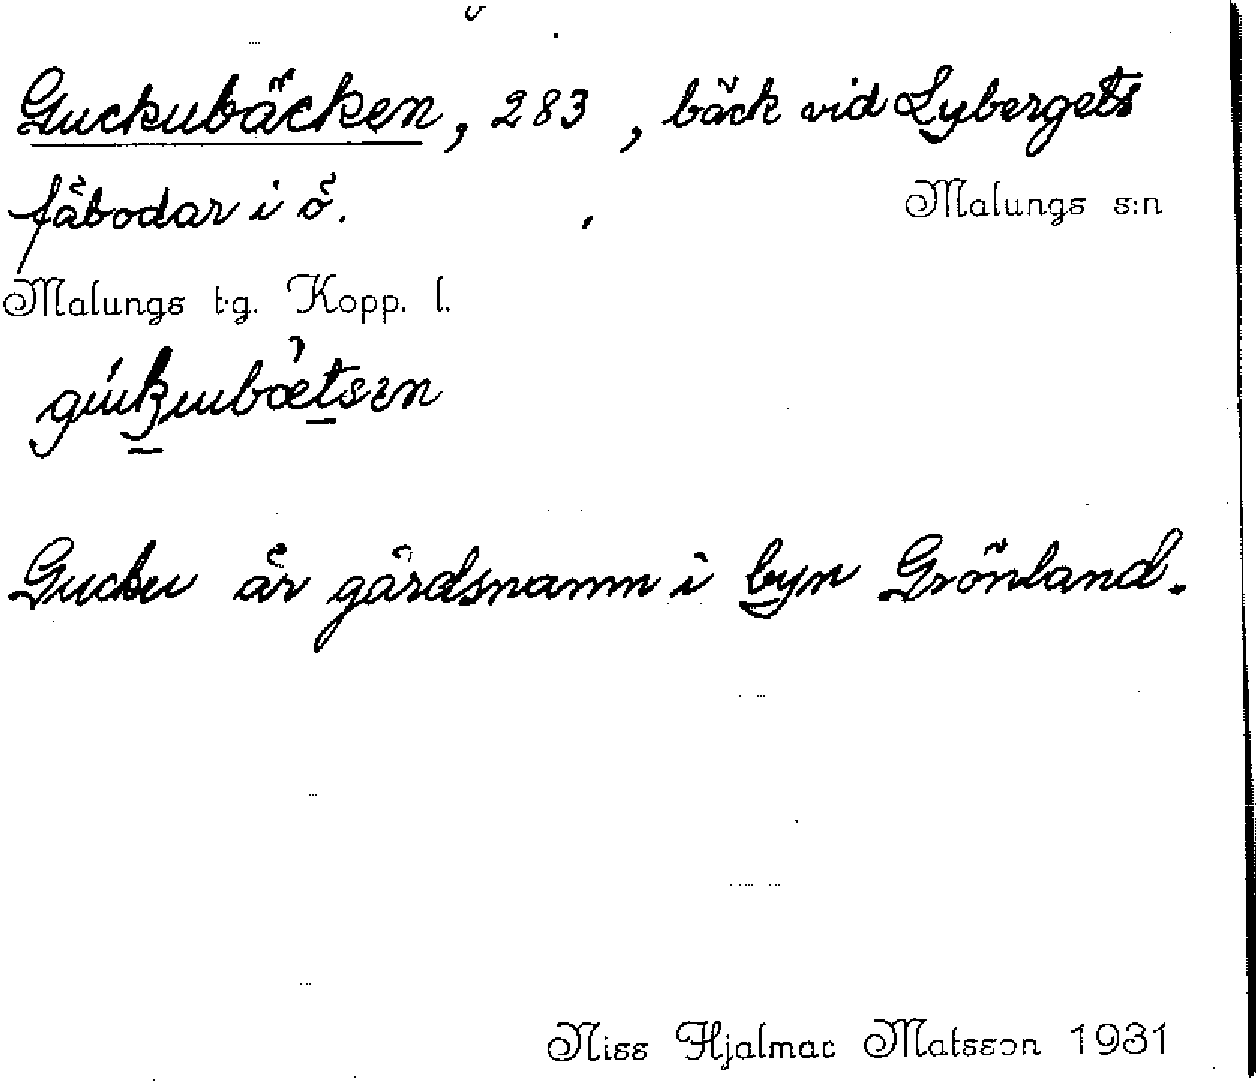 Guckubäcken, 283, bäck vid Lybergets
fäbodar i ö.
Malungs s:n
Malungs tg. Kopp. l.
Gucku är gårdsnamn i byn Grönland.
Niss Hjalmar Matsson 1931